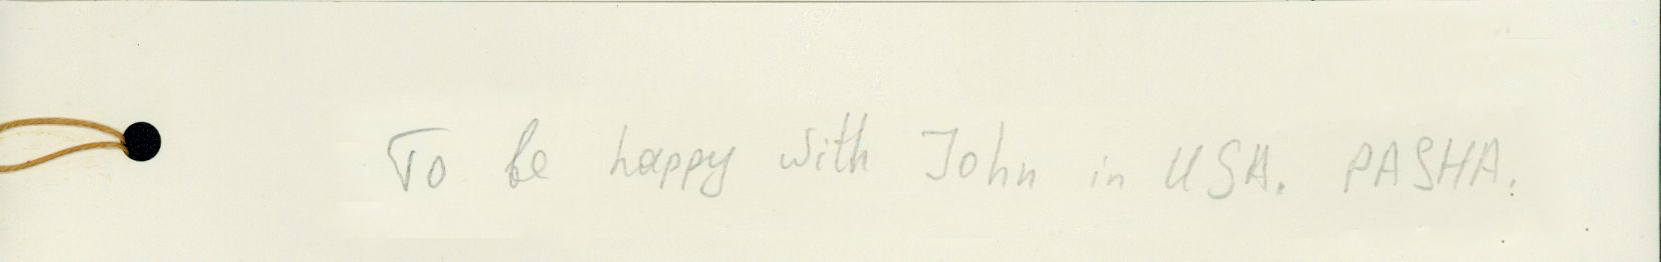 To be happy with John in USA. PASHA.